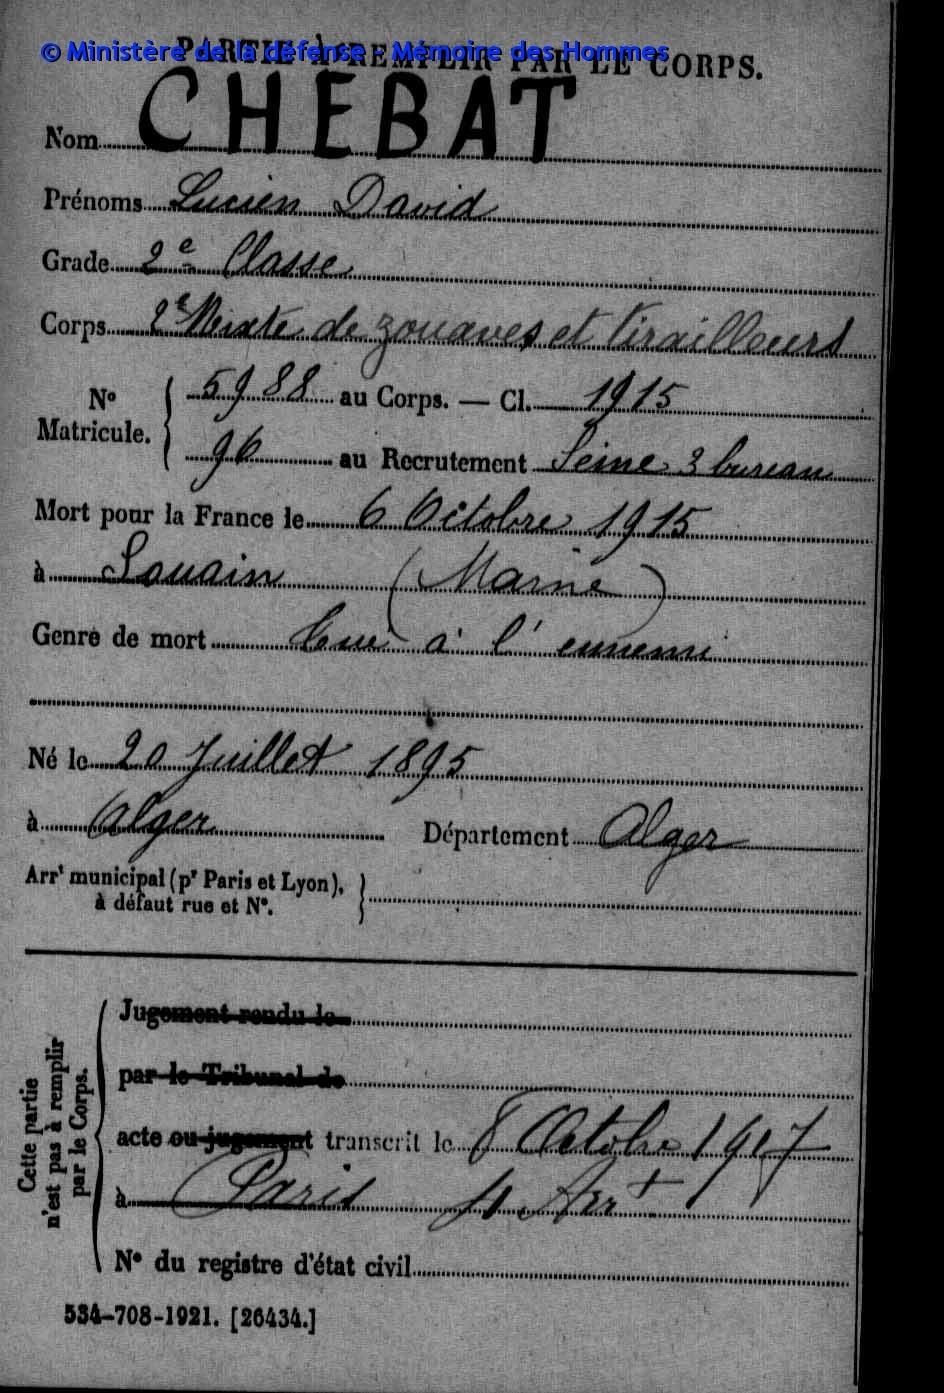 © Ministère de la défense - Mémoire des Hommes
PARTIE À REMPLIR PAR LE CORPS.
Nom CHEBAT
Prénoms Lucien David
Grade 2e Classe
Corps 2e Mixte de zouaves et tirailleurs
No Matricule. { 5988 au Corps. — Cl. 1915
96 au Recrutement Seine 3 bureau
Mort pour la France le 6 Octobre 1915
à Souain (Marne)
Genre de mort Tué à l'ennemi
Né le 20 Juillet 1895
à Alger Département Alger
Arrt municipal (pr Paris et Lyon), }
à défaut rue et No.
Cette partie
n'est pas à remplir
par le Corps.
Jugement rendu le
par le Tribunal de
acte ou jugement transcrit le 8 Octobre 1917
à Paris Arrt
No du registre d'état civil
534-708-1921. [26434.]